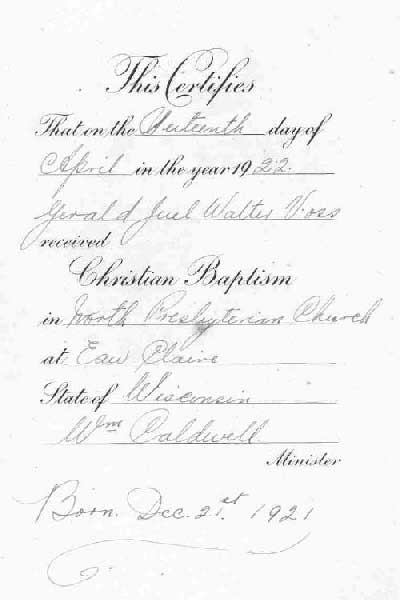 This Certifies
That on the Sixteenth day of
April in the year 1922.
Gerald Juel Walter Voss
received
Christian Baptism
in North Presbyterian Church
at Eau Claire
State of Wisconsin
Wm Caldwell
Minister
Born. Dec. 21st. 1921